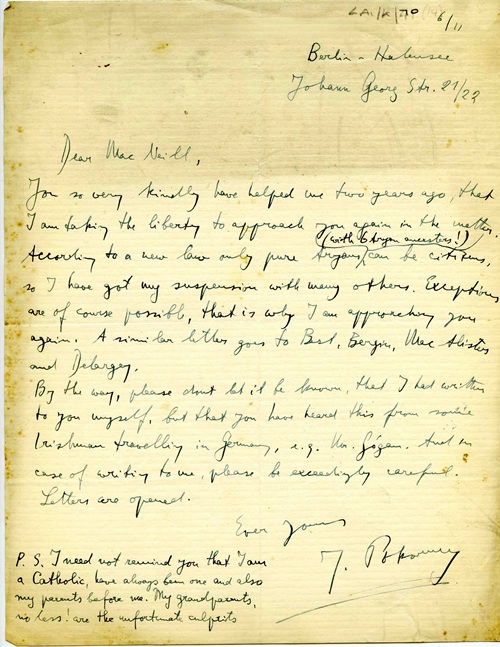 LA1/K/70
6/11
Berlin - Halensee
Johann Georg Str. 21/22
Dear Mac Neill,
You so very kindly have helped me two years ago, that
I am taking the liberty to approach you again in the matter.
(with 6 Aryan ancestors!)
According to a new law only pure Aryans can be citizens,
so I have got my suspension with many others. Exceptions
are of course possible, that is why I am approaching you
again. A similar letter goes to Best, Bergin, Mac Alister
and Delargy.
By the way, please dont let it be known, that I had written
to you myself, but that you have heard this from some
Irishman travelling in Germany, e.g. Mr. Gógan. And in
case of writing to me, please be exceedingly careful.
Letters are opened.
Ever Yours
J. Pokorny
P. S. I need not remind you that I am
a Catholic, have always been one and also
my parents before me. My grandparents,
no less! are the unfortunate culprits